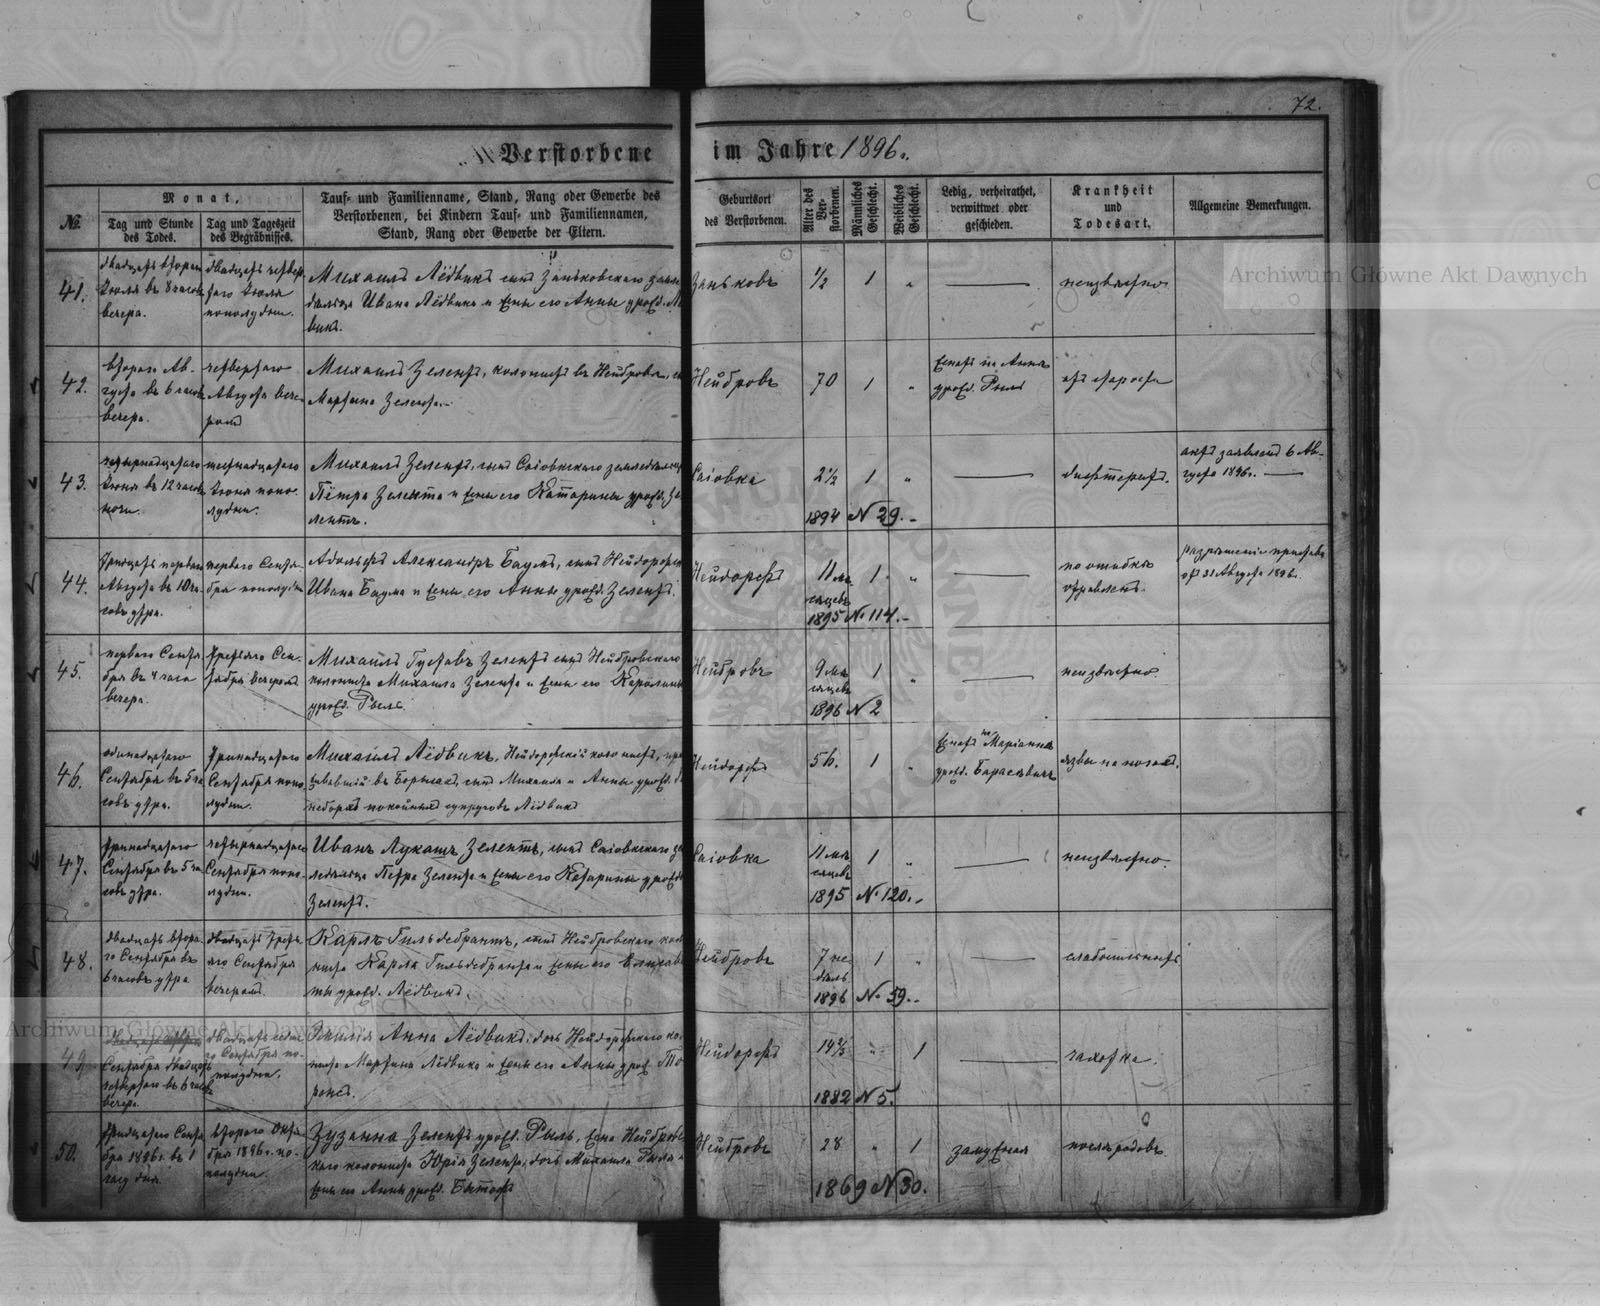 72.
Verstorbene im Jahre 1896.
Archiwum Główne Akt Dawnych
№
Monat,
Tag und Stunde des Todes.
Tag und Tageszeit des Begräbnisses.
Tauf- und Familienname, Stand, Rang oder Gewerbe des
Verstorbenen, bei Kindern Tauf- und Familiennamen,
Stand, Rang oder Gewerbe der Eltern.
Geburtsort
des Verstorbenen.
Alter des Verstorbenen.
Männliches Geschlecht.
Weibliches Geschlecht.
Ledig, verheirathet,
verwittwet oder
geschieden.
Krankheit
und
Todesart.
Allgemeine Bemerkungen.
41.
двадцать втораго
Июля въ 8 часовъ
вечера.
двадцать четвер-
таго Июля
пополудни.
Михаилъ Лёдвикъ сынъ Заньковскаго
Ивана Лёдвика и жены его Анны урожд.
викъ.
Заньковъ
1/2
1
"
неизвѣстно
42.
втораго Ав-
густа въ 6 часовъ
вечера.
четвертаго
Августа вече-
ромъ
Михаилъ Зелентъ, колонистъ въ Нейбровѣ,
Мартина Зелента.
Нейбровъ
70
1
"
Женатъ на Аннѣ
урожд. Рыль
отъ старости
43.
четырнадцатаго
Июня въ 12 часовъ
ночи.
шестнадцатаго
Июня попо-
лудни.
Михаилъ Зелентъ, сынъ Саіовкскаго
Петра Зелента и жены его Катарины урожд. Зе
лентъ.
Саіовка
2 1/2
1
"
1894 N 29.
дифтеритъ.
актъ заявленъ 6 Ав-
густа 1896 г.
44.
Тридцать перваго
Августа въ 10 ча
совъ утра.
перваго Сентя-
бря пополудни
Адольфъ Александръ Баумъ, сынъ
Ивана Баума и жены его Анны урожд. Зелентъ.
Нейдорфъ
11 мѣ
сяцевъ
1
"
1895 № 114.
по ошибкѣ
отравленъ.
разрѣшеніе пристава
отъ 31 Августа 1896 г.
45.
перваго Сентя
бря въ 4 часа
вечера.
третьяго Сен-
тября вечеромъ
Михаилъ Густавъ Зелентъ сынъ Нейбровскаго
колониста Михаила Зелента и жены его Каролины
урожд. Рыль.
Нейбровъ
9 мѣ
сяцевъ
1
"
1896 N 2
неизвѣстно
46.
одинадцатаго
Сентября въ 5 ча
совъ утра.
Тринадцатаго
Сентября попо
лудни.
Михаилъ Лёдвикъ, Нейдорфскій колонистъ,
сынъ Михаила и Анны урожд.
покойныхъ супруговъ Лёдвикъ
Нейдорфъ
56.
1
"
Женатъ на Маріаннѣ
урожд.
язвы на ногахъ.
47.
Тринадцатаго
Сентября въ 5 ча
совъ утра.
четырнадцатаго
Сентября попо-
лудни.
Иванъ Лукашъ Зелентъ, сынъ Саіовкскаго зе
Петра Зелента и жены его Катарины урожд.
Зелентъ.
Саіовка
11 мѣ
сяцевъ
1
"
1895 № 120.
неизвѣстно
48.
двадцать втора
го Сентября въ
6 часовъ утра
двадцать треть
яго Сентября
вечеромъ.
Карлъ Гильдебрантъ, сынъ Нейбровскаго коло
ниста Карла Гильдебранта и жены его Елисаве
ты урожд. Лёдвикъ.
Нейбровъ
7 не
дѣль
1
"
1896 № 59.
49.
Сентября двадцать
четвертаго въ 6 часовъ
вечера.
Сентября по-
полудни.
Эмилія Анна Лёдвикъ, дочь Нейдорфскаго ко
ниста Мартина Лёдвика и жены его Анны урожд.
Нейдорфъ
14 2/3
"
1
1882 N 5.
чахотка.
50.
Тридцатаго Сентя
бря 1896 г. въ 1
часу дня.
втораго Октя
бря 1896 г. по-
полудни.
Зузанна Зелентъ урожд. Рыль, жена Нейбровс
каго колониста Юрія Зелента, дочь Михаила Рыля и
жены его Анны урожд.
Нейбровъ
28
"
1
1869 N 30.
замужняя
послѣ родовъ.
Archiwum Główne Akt Dawnych